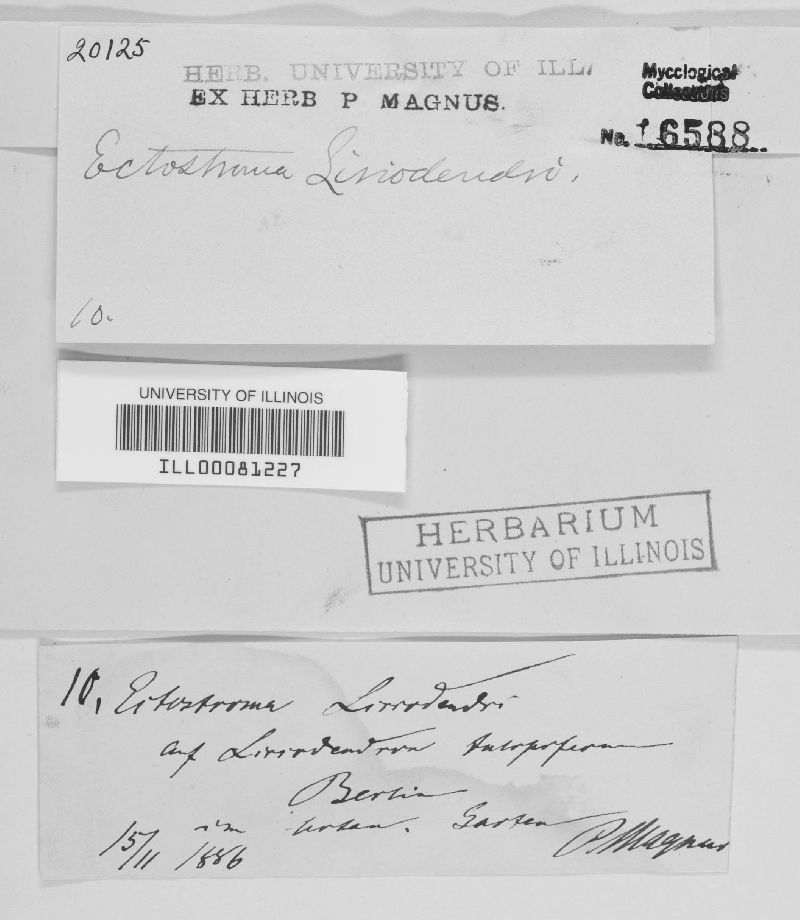 20125
HERB. UNIVERSITY OF ILL.
EX HERB P MAGNUS.
Mycological
Collections
No. 16588
Ectostroma Liriodendri.
10.
UNIVERSITY OF ILLINOIS
ILL00081227
HERBARIUM
UNIVERSITY OF ILLINOIS
10. Ectostroma Liriodendri
auf Liriodendron tulipiferum
Berlin
im botan. Garten
15/11 1886
P. Magnus